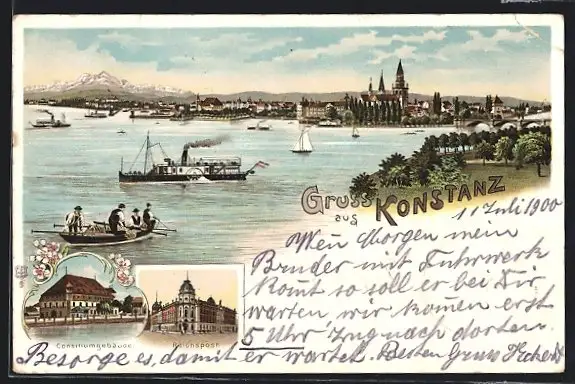 Gruss
aus KONSTANZ
11 Juli 1900
Wen Morgen mein
Bruder mit Fuhrwerk
komt so soll er bei Dir
warten wir komen erst
5 Uhr Zug nach dorten.
Besorge es, damit er wartet. Besten Gruss
Consiliumgebäude
Reichspost